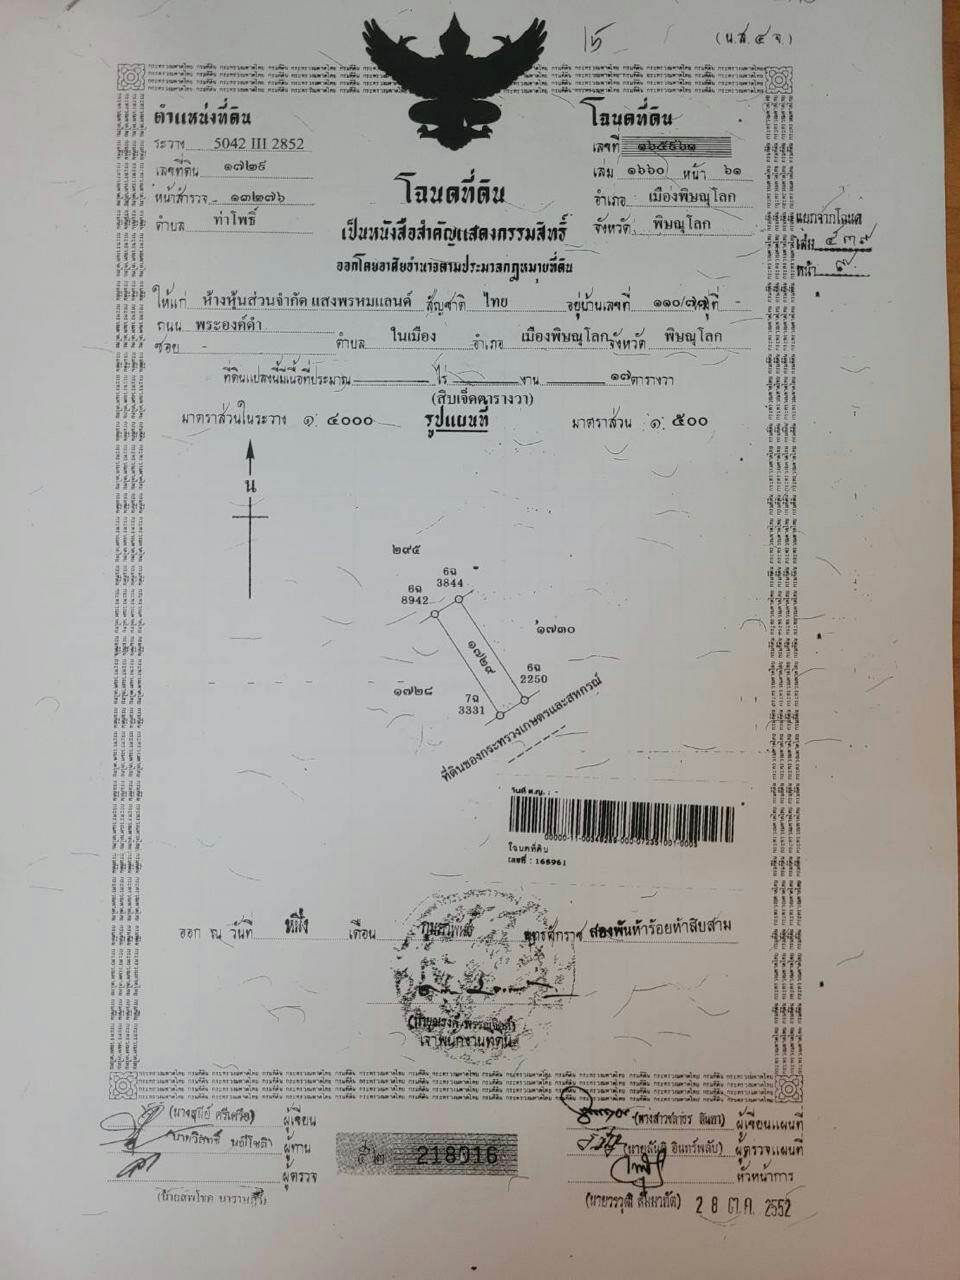 (น.ส.๔ จ.)
ตำแหน่งที่ดิน
ระวาง 5042 III 2852
เลขที่ดิน ๑๗๒๙
หน้าสำรวจ ๑๓๒๗๖
ตำบล ท่าโพธิ์
โฉนดที่ดิน
เลขที่ ๑๖๕๙๖๑
เล่ม ๑๖๖๐ หน้า ๖๑
อำเภอ เมืองพิษณุโลก
จังหวัด พิษณุโลก
แยกจากโฉนด
เล่ม ๔๓๙
หน้า
โฉนดที่ดิน
เป็นหนังสือสำคัญแสดงกรรมสิทธิ์
ออกโดยอาศัยอำนาจตามประมวลกฎหมายที่ดิน
ให้แก่ ห้างหุ้นส่วนจำกัด แสงพรหมแลนด์ สัญชาติ ไทย อยู่บ้านเลขที่ หมู่ที่ -
ถนน พระองค์ดำ
ซอย - ตำบล ในเมือง อำเภอ เมืองพิษณุโลก จังหวัด พิษณุโลก
ที่ดินแปลงนี้มีเนื้อที่ประมาณ ไร่ งาน ๑๗ ตารางวา
(สิบเจ็ดตารางวา)
มาตราส่วนในระวาง ๑: ๔๐๐๐ รูปแผนที่ มาตราส่วน ๑: ๕๐๐
น
๒๙๕
6ฉ
3844
6ฉ
8942
๑๗๓๐
๑๗๒๙
6ฉ
2250
๑๗๒๘
7ฉ
3331
ที่ดินของกระทรวงเกษตรและสหกรณ์
โฉนดที่ดิน
เลขที่ : 165961
ออก ณ วันที่ หนึ่ง เดือน กุมภาพันธ์ พุทธศักราช สองพันห้าร้อยห้าสิบสาม
เจ้าพนักงานที่ดิน
ผู้เขียน
ผู้ทาน
ผู้ตรวจ
218016
ผู้เขียนแผนที่
(นายสันติ อินทร์พลับ) ผู้ตรวจแผนที่
หัวหน้าการ
28 ต.ค. 2552